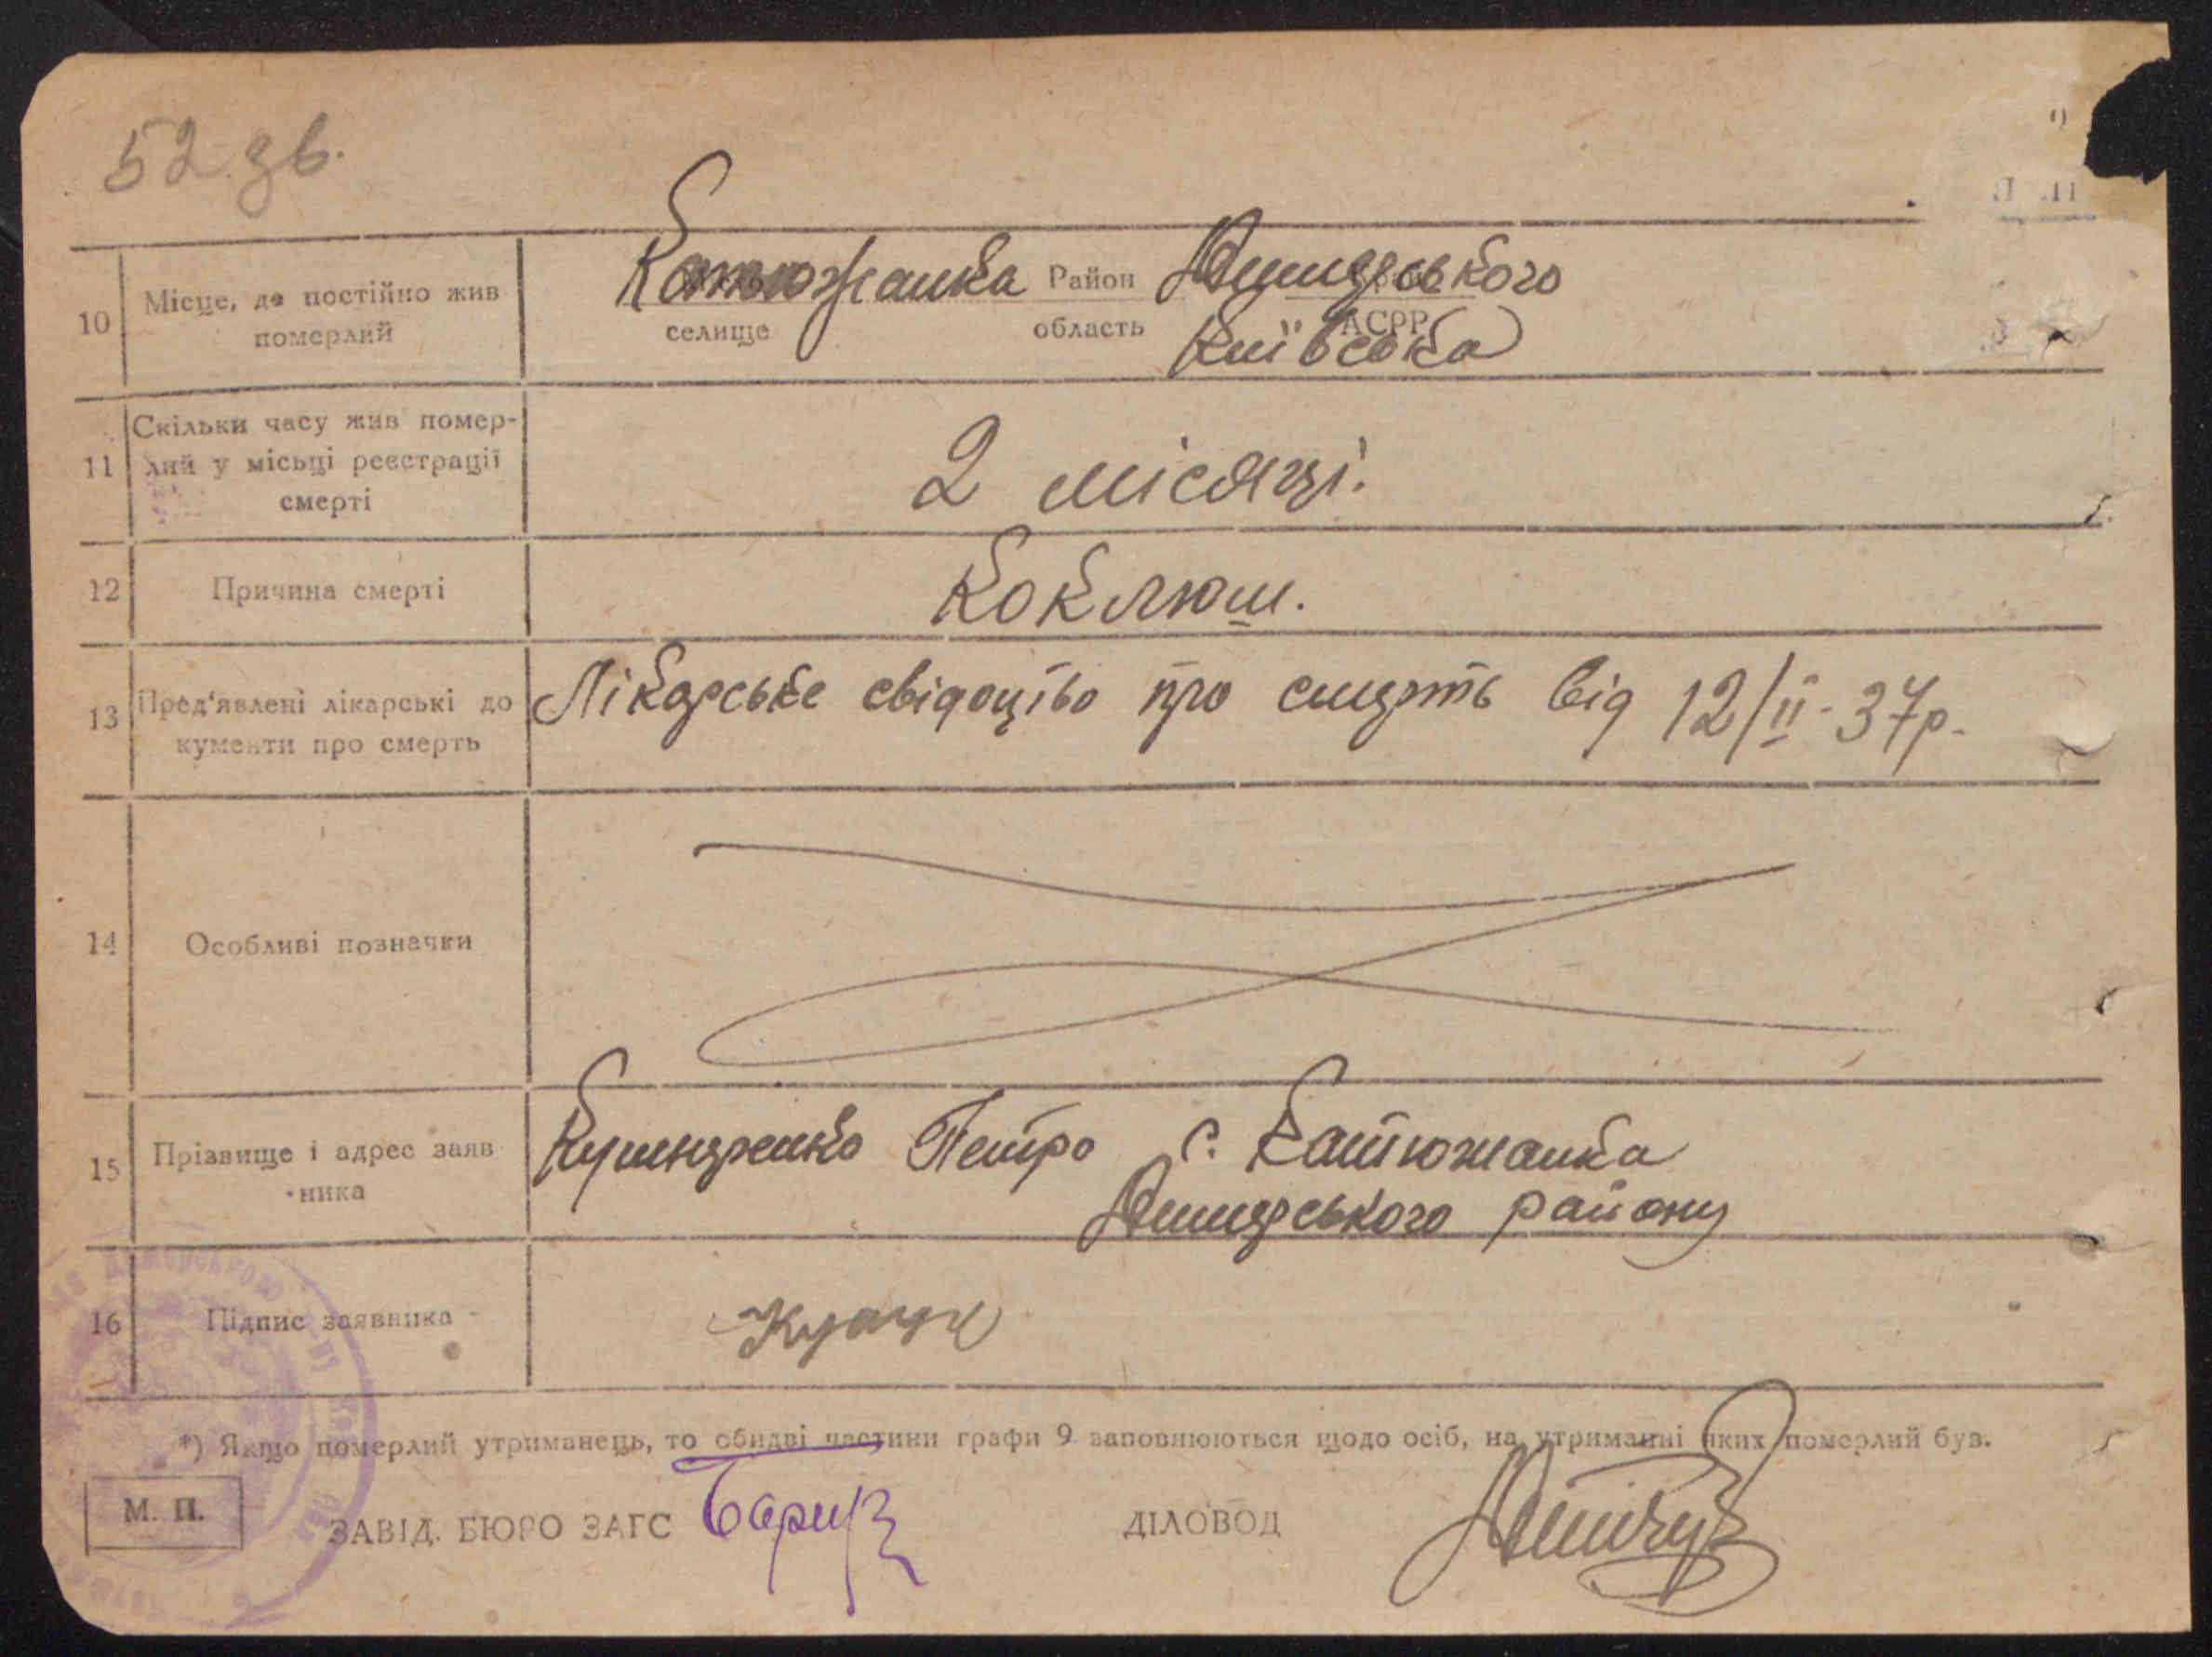 52 зв.
10 Місце, де постійно жив померлий
Катюжанка Район Димерського
селище область АСРР
Київська
11 Скільки часу жив помер-
лий у місьці реєстрації
смерті
2 місяці.
12 Причина смерті
Коклюш.
13 Пред'явлені лікарські до
кументи про смерть
Лікарське свідоцтво про смерть від 12/II-37р.
14 Особливі позначки
15 Прізвище і адрес заяв
ника
Кушнеренко Петро с. Катюжанка
Димерського району
16 Підпис заявника
*) Якщо померлий утриманець, то обидві частини графи 9 заповнюються щодо осіб, на утриманні яких померлий був.
М. П.
ЗАВІД. БЮРО ЗАГС
ДІЛОВОД